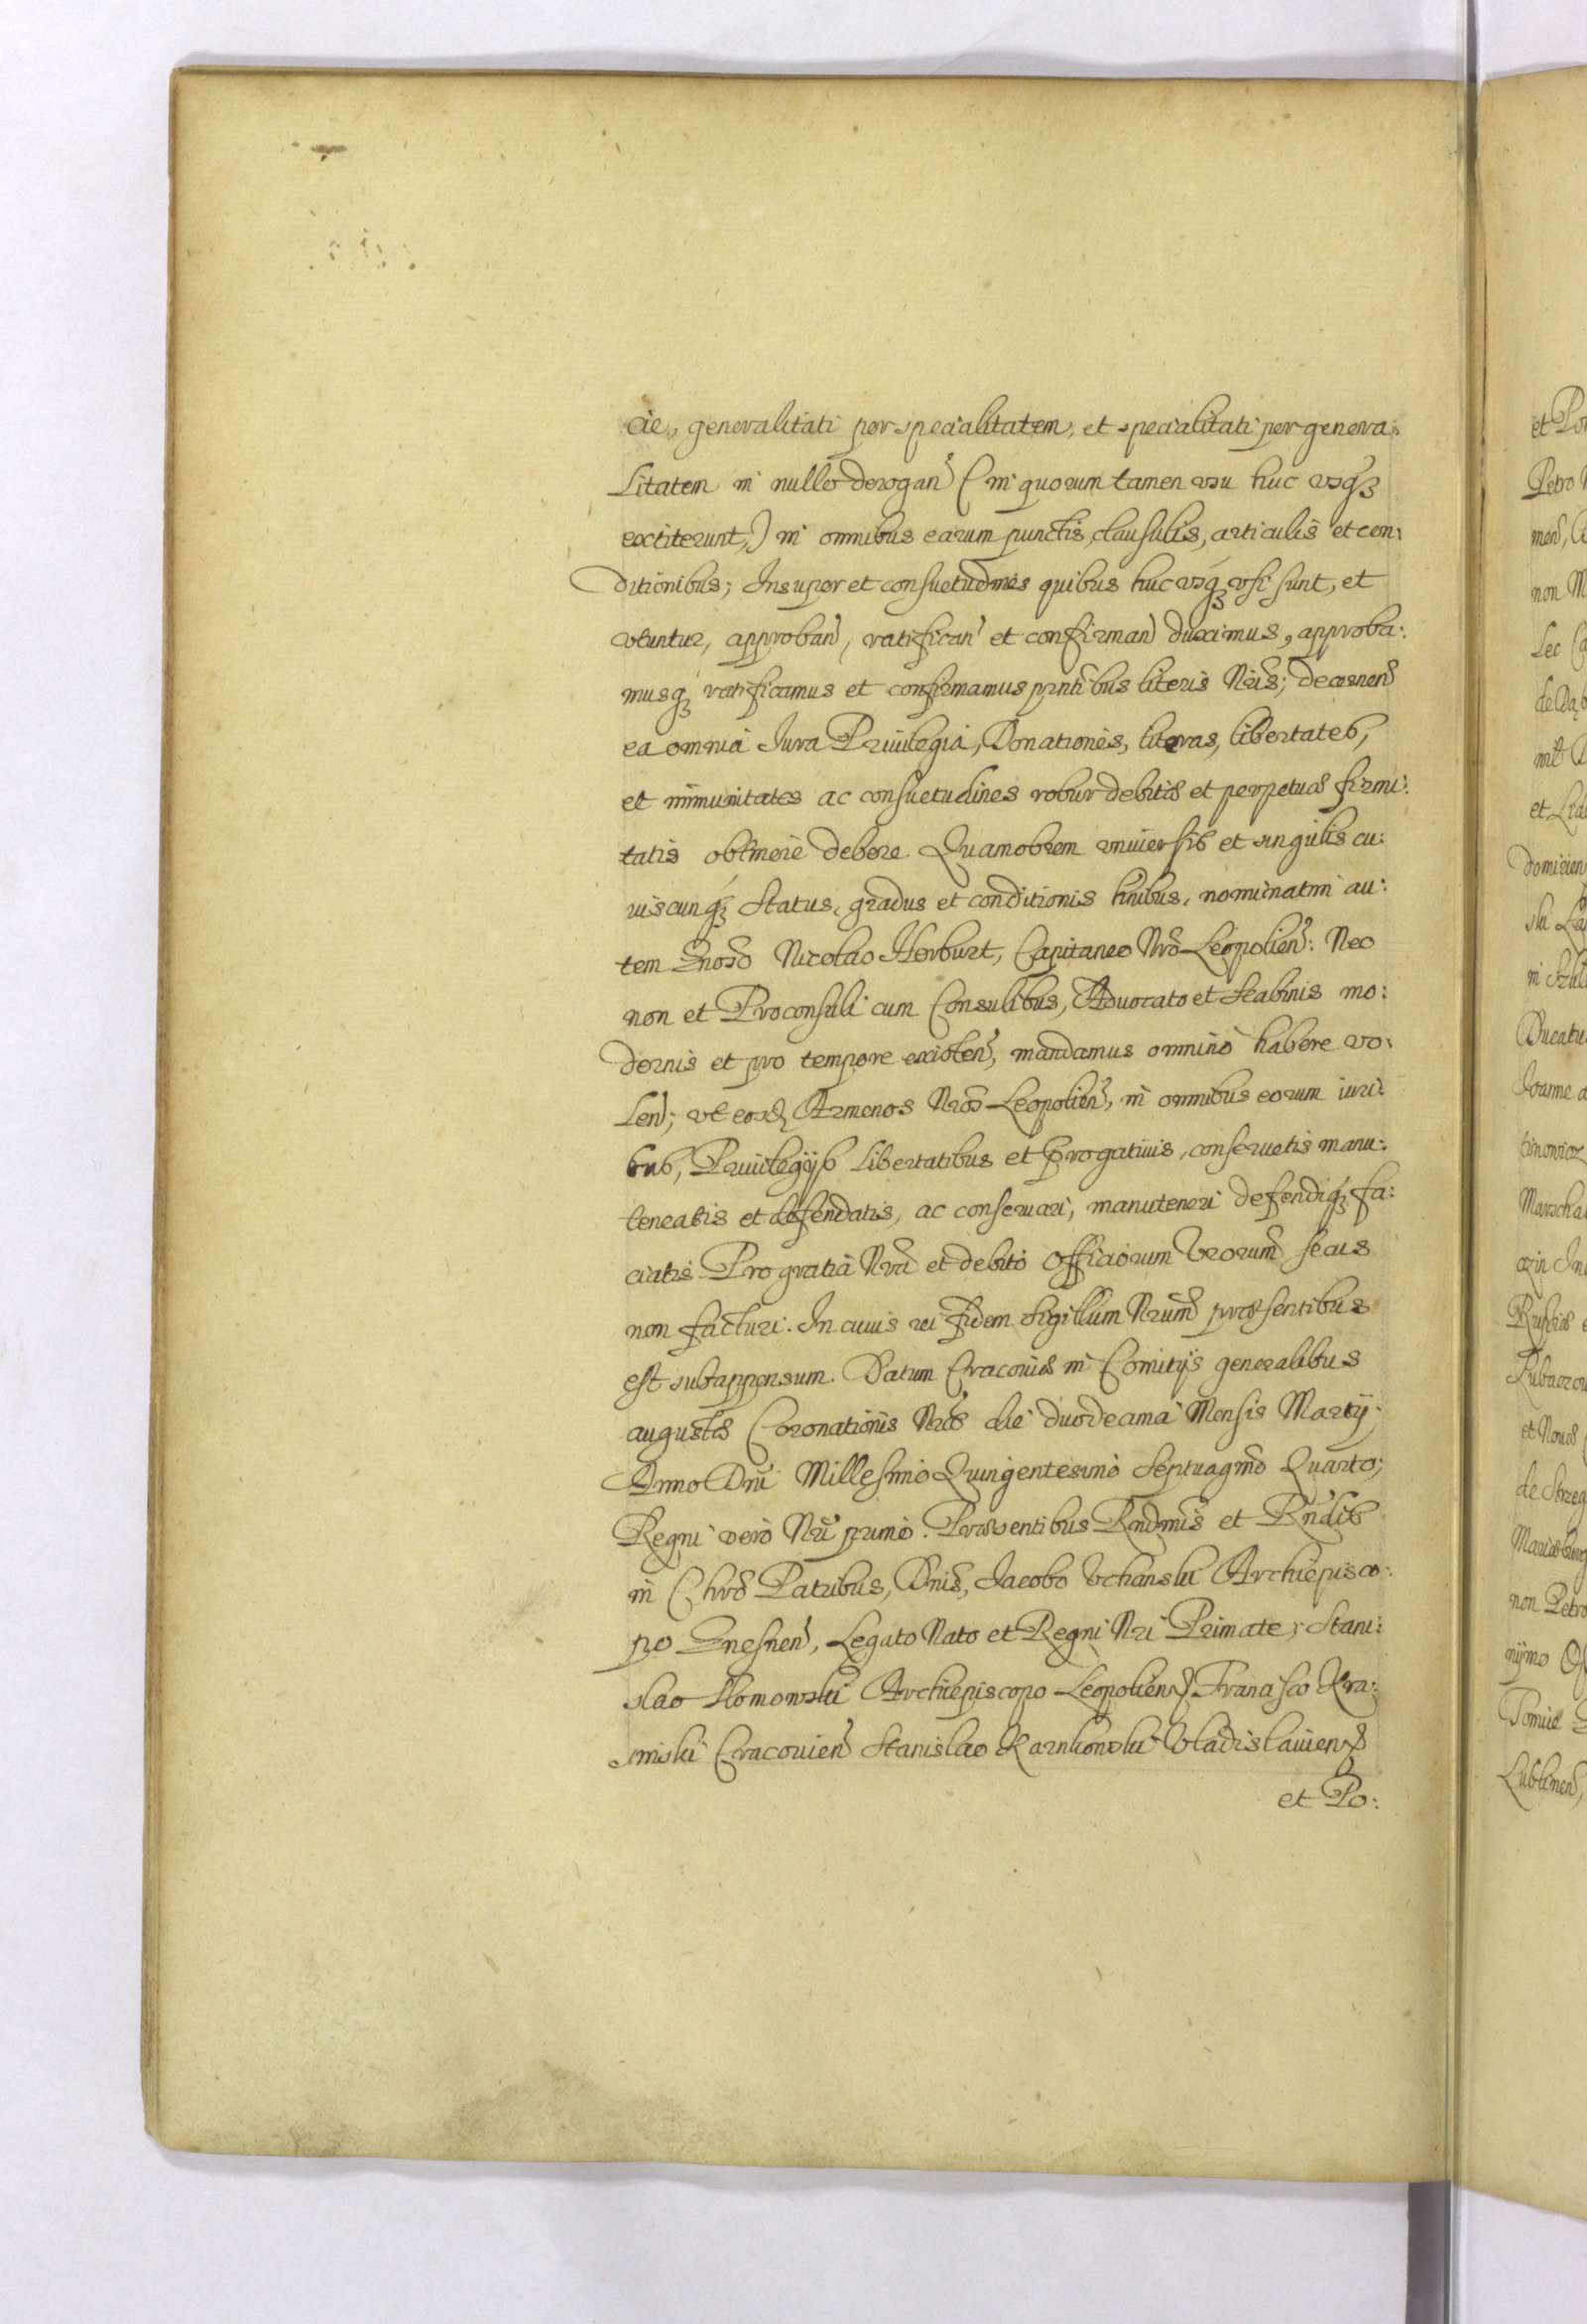 cie, generalitati per specialitatem, et specialitati per genera:
litatem in nullo derogan̄ (in quorum tamen usu huc usq;
extiterunt,) in omnibus earum punctis, clausulis, articulis et con:
ditionibus; Insuper et consuetudines quibus huc usq; usi sunt, et
utuntur, approban̄, ratifican̄ et confirman̄ duximus, approba:
musq; ratificamus et confirmamus pñtibus literis Nr̄is; decernen̄
ea omnia Iura Priuilegia, Donationes, literas, libertates,
et immunitates ac consuetudines robur debitæ et perpetuæ firmi:
tatis obtinere debere. Quamobrem uniuersis et singulis cu:
iuscunq; Status, gradus et conditionis hñibus, nominatim au:
tem Gnoso Nicolao Herburt, Capitaneo Nr̄o Leopolien̄: Nec
non et Proconsuli cum Consulibus, Aduocato et Scabinis mo:
dernis et pro tempore existen̄, mandamus omnino habere vo:
len̄; ut eosd̄ Armenos Nr̄os Leopolien̄, in omnibus eorum iuri:
bus, Priuilegijs Libertatibus et prrogatiuis, conseruetis manu:
teneatis et defendatis, ac conseruari, manuteneri defendiq; fa:
ciatis Pro gratia Nr̄a et debito Officiorum Vrorum̄ secus
non facturi. In cuius rei fidem Sigillum Nrum̄ præsentibus
est subappensum. Datum Cracouiæ in Comitijs generalibus
augustæ Coronationis Nræ die duodecima Mensis Martij
Anno Dn̄i Millesimo Quingentesimo Septuagmo Quarto;
Regni vero Nr̄i primo. Præsentibus Rndmis et Rndis
in Chro Patribus, Dnis, Iacobo Uchanski Archiepisco:
po Gnesnen̄, Legato Nato et Regni Nri Primate; Stani:
slao Slomowski Archiepiscopo Leopolien̄, Francisco Kra:
sinski Cracouien̄ Stanislao Karnkonski Vladislauien̄
et Po: